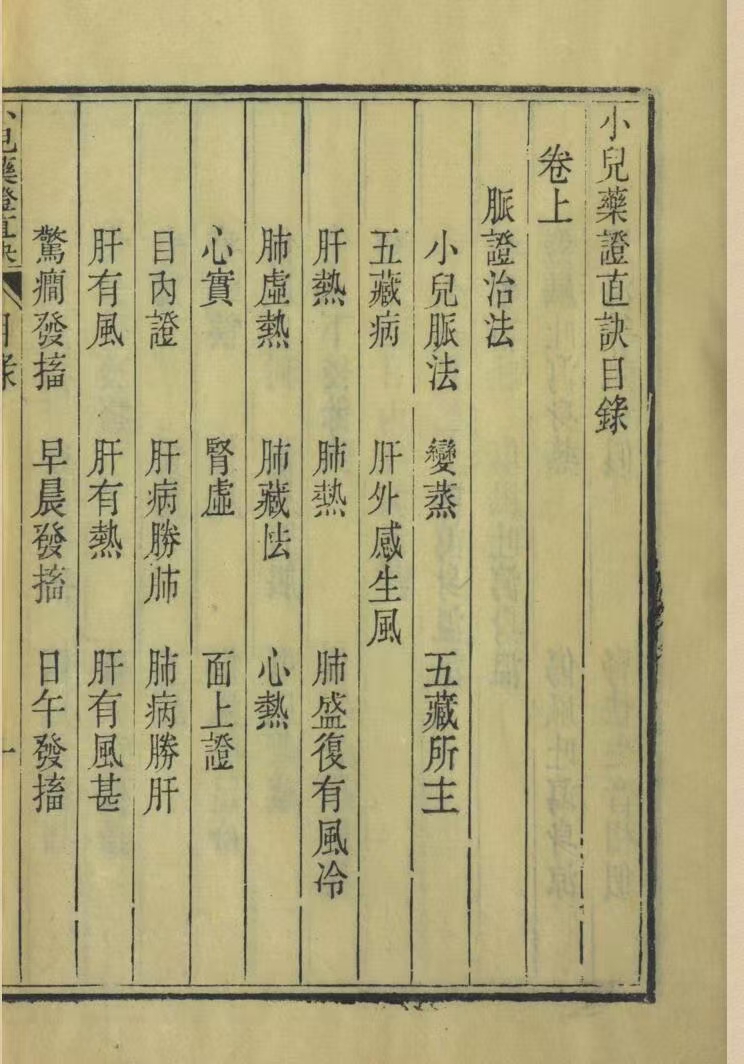 小兒藥證直訣目錄
卷上
脈證治法
小兒脈法 變蒸 五藏所主
五藏病 肝外感生風
肝熱 肺熱 肺盛復有風冷
肺虛熱 肺藏怯 心熱
心實 腎虛 面上證
目內證 肝病勝肺 肺病勝肝
肝有風 肝有熱 肝有風甚
驚癇發搐 早晨發搐 日午發搐
小兒藥證直訣 目錄 一